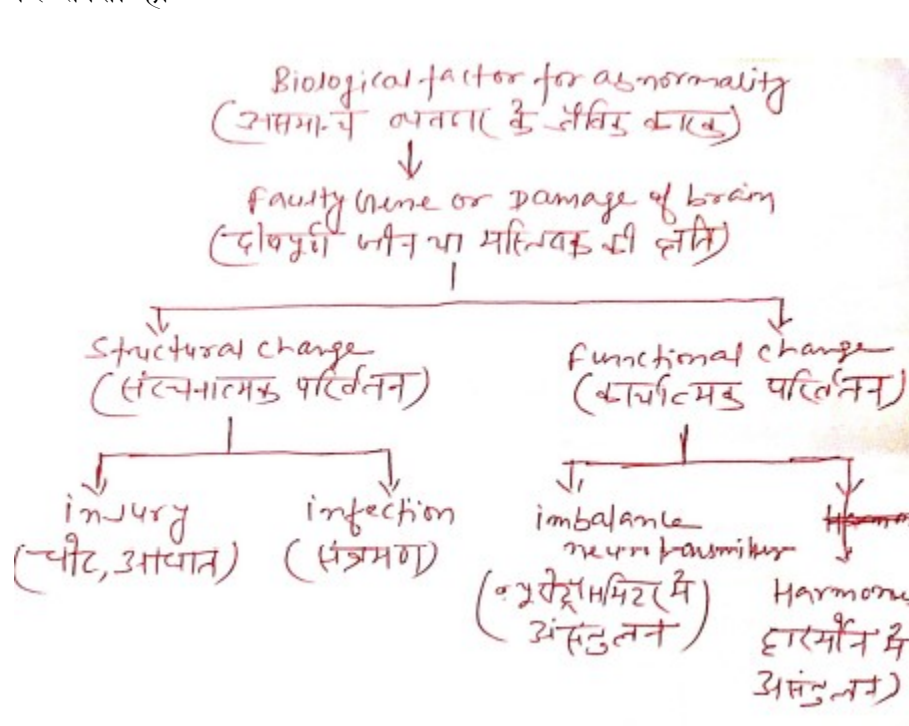 Biological factor for abnormality
(असमान्य व्यवहार के जैविक कारक)
Faulty Gene or Damage of brain
(दोषपूर्ण जीन या मस्तिष्क की क्षति)
Structural change
(संरचनात्मक परिवर्तन)
functional change
(कार्यात्मक परिवर्तन)
injury
(चोट, आघात)
infection
(संक्रमण)
imbalance
neurotransmitter
(न्यूरोट्रांसमिटर में
असंतुलन)
Harmon
हारमोन में
असंतुलन)